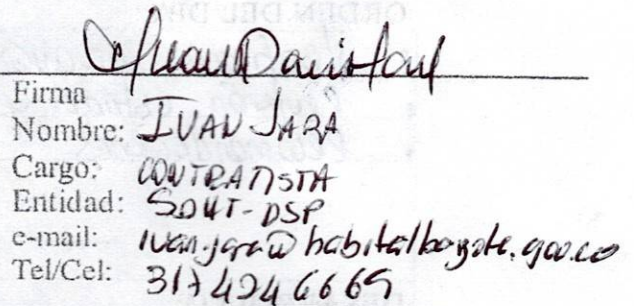 Firma
Nombre: IVAN JARA
Cargo: CONTRATISTA
Entidad: SDHT-DSP
e-mail: ivan.jara@habitatbogota.gov.co
Tel/Cel: 3174246669